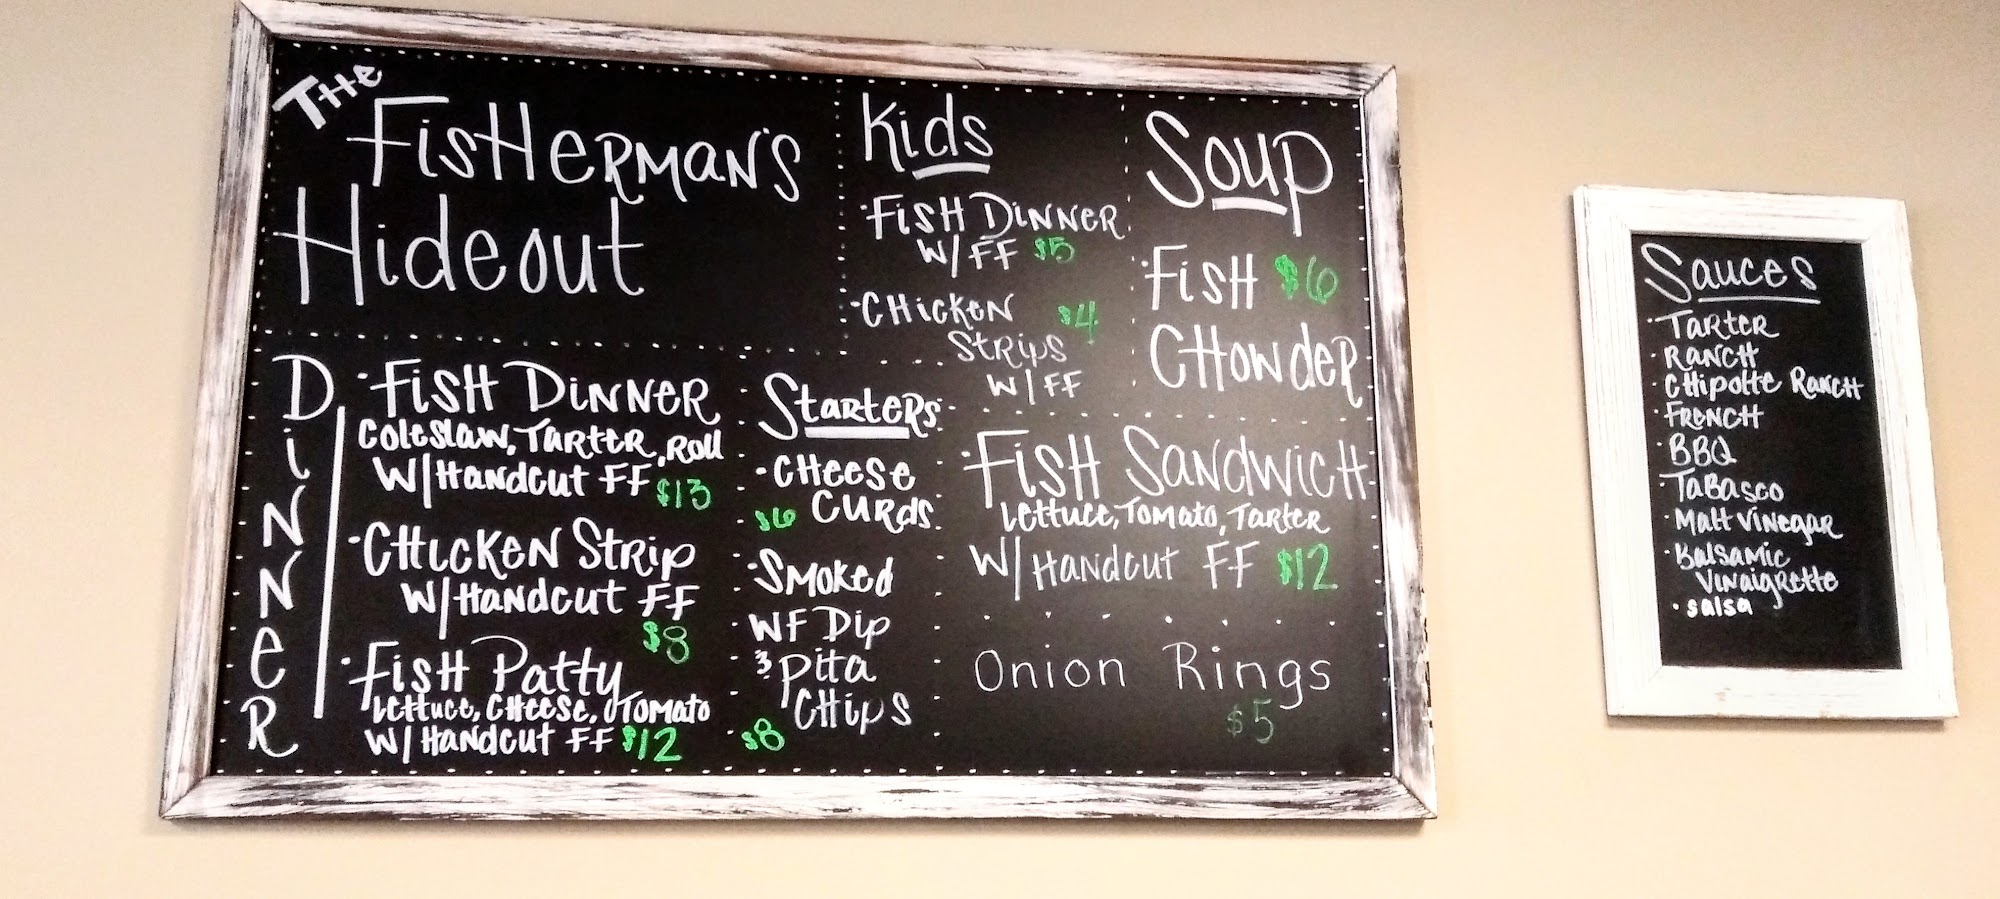 The
Fisherman's
Hideout
Kids
·Fish Dinner
w/FF $5
·Chicken $4
Strips
w/FF
Soup
·Fish $6
Chowder
Dinner
·Fish Dinner
Coleslaw, Tarter, Roll
w/Handcut FF $13
·Chicken Strip
w/Handcut FF
$8
·Fish Patty
Lettuce, Cheese, Tomato
w/Handcut FF $12
Starters
·Cheese
$6 Curds
·Smoked
WF Dip
& Pita
Chips
$8
·Fish Sandwich
Lettuce, Tomato, Tarter
w/Handcut FF $12
Onion Rings
$5
Sauces
·Tarter
·Ranch
·Chipotte Ranch
·French
·BBQ
·Tabasco
·Malt Vinegar
·Balsamic
Vinaigrette
·Salsa